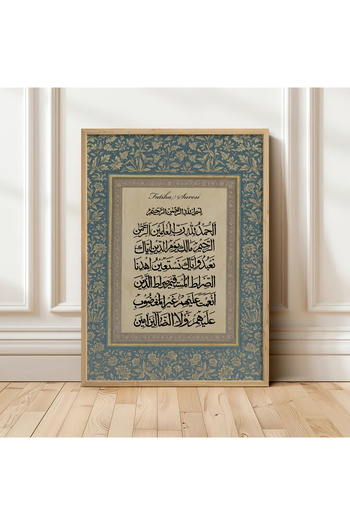 Fatiha Suresi
بسم الله الرحمن الرحيم
الحمد لله رب العالمين الرحمن
الرحيم مالك يوم الدين اياك
نعبد واياك نستعين اهدنا
الصراط المستقيم صراط الذين
انعمت عليهم غير المغضوب
عليهم ولا الضالين امين